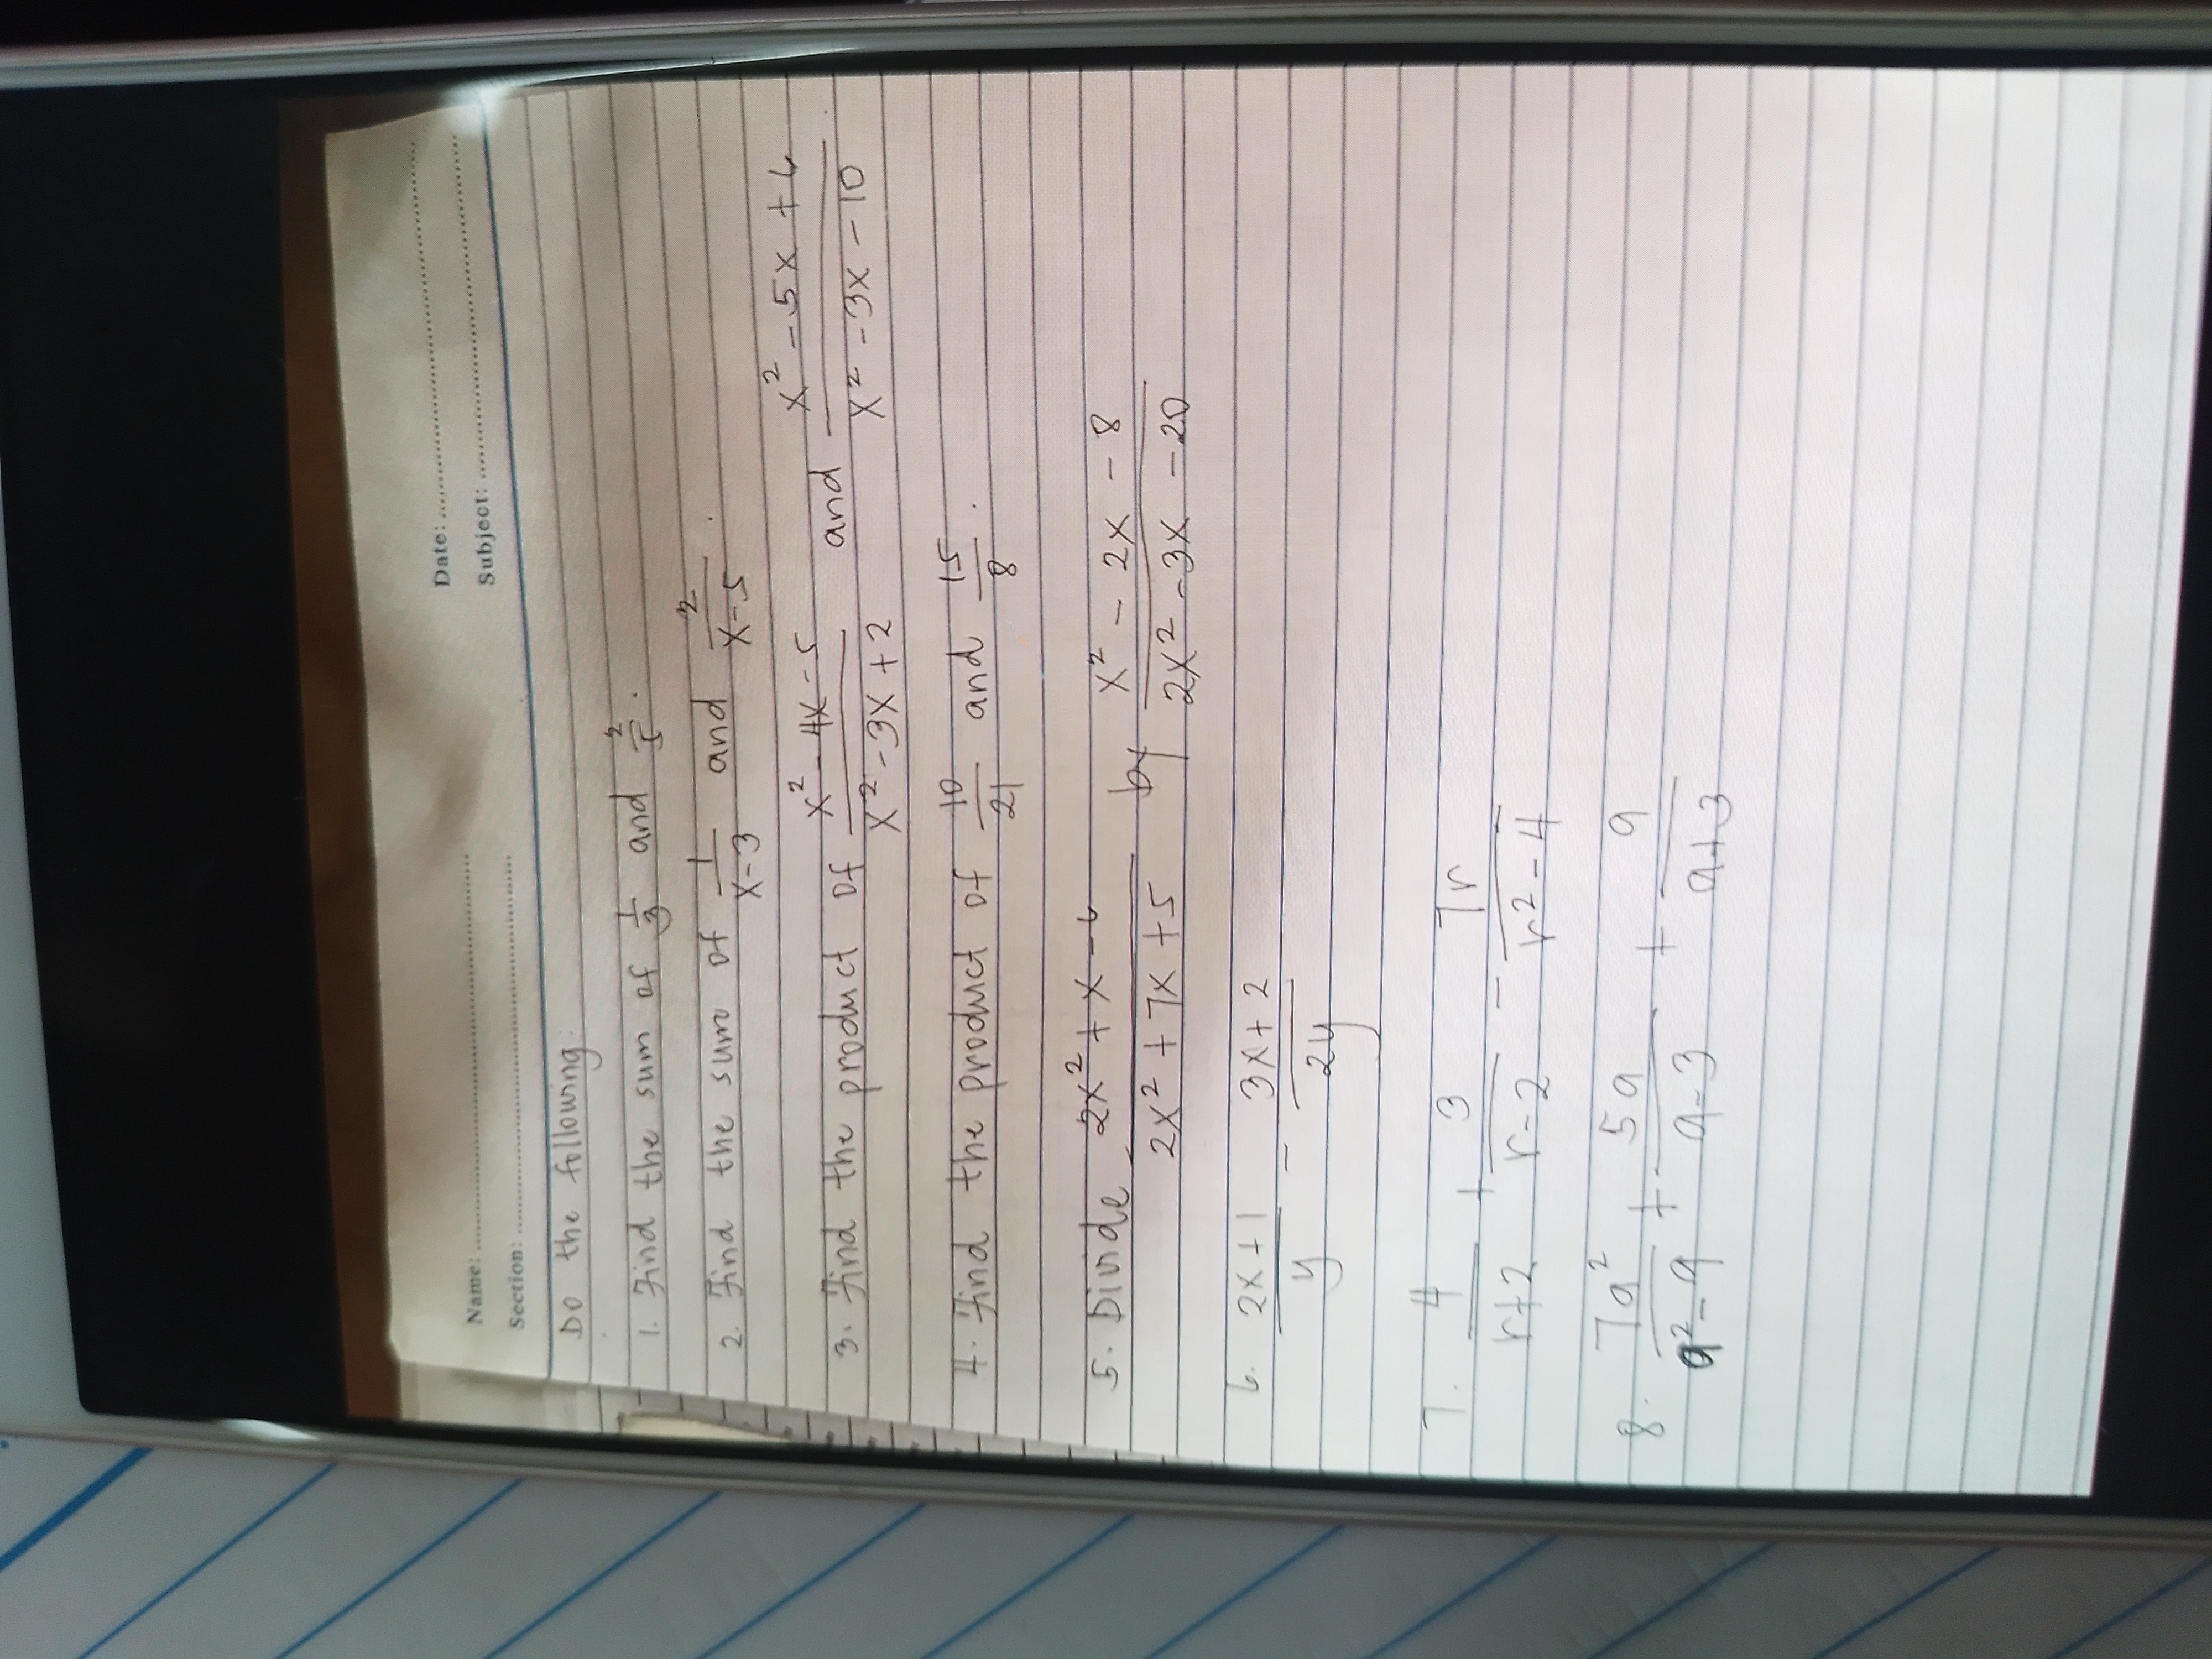 Name: ........ Date: ........
Section: ........ Subject: ........
Do the following:
1. Find the sum of 1/3 and 2/5.
2. Find the sum of 1/(x-3) and 2/(x-5).
3. Find the product of (x² - 4x - 5)/(x² - 3x + 2) and (x² - 5x + 6)/(x² - 3x - 10).
4. Find the product of 10/21 and 15/8.
5. Divide (2x² + x - 6)/(2x² + 7x + 5) by (x² - 2x - 8)/(2x² - 3x - 20)
6. (2x+1)/y - (3x+2)/2y
7. 4/(r+2) + 3/(r-2) - 7r/(r²-4)
8. 7a²/(a²-9) + 5a/(a-3) + 9/(a+3)